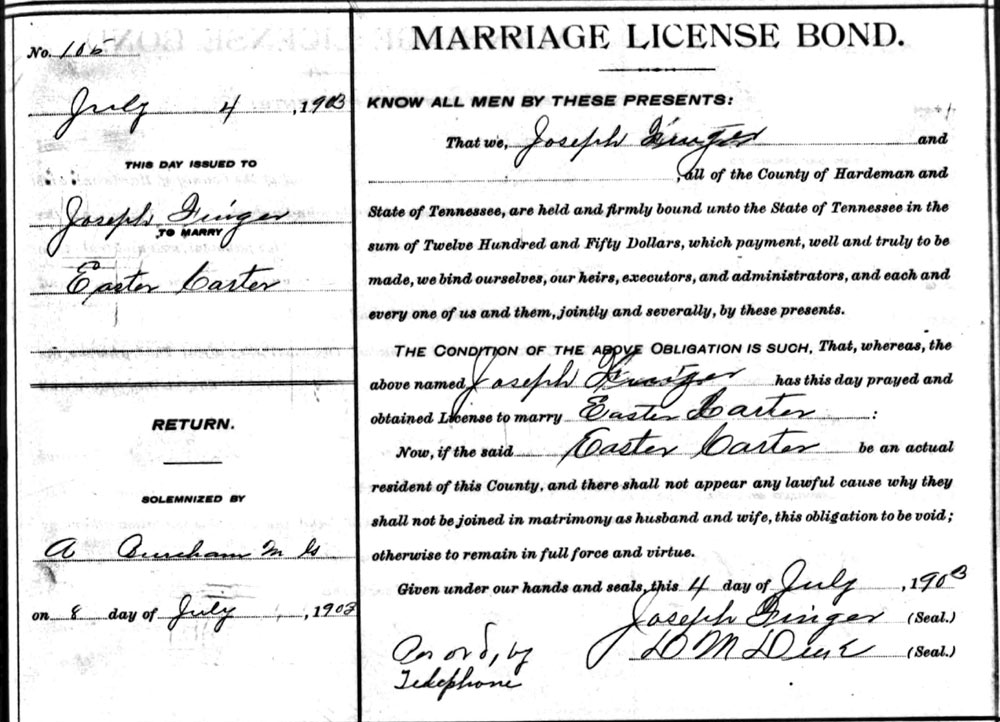 No. 105
July 4, 1903
THIS DAY ISSUED TO
Joseph Finger
TO MARRY
Easter Carter
RETURN.
SOLEMNIZED BY
A Burcham M G
on 8 day of July, 1903
MARRIAGE LICENSE BOND.
KNOW ALL MEN BY THESE PRESENTS:
That we, Joseph Finger and
, all of the County of Hardeman and
State of Tennessee, are held and firmly bound unto the State of Tennessee in the
sum of Twelve Hundred and Fifty Dollars, which payment, well and truly to be
made, we bind ourselves, our heirs, executors, and administrators, and each and
every one of us and them, jointly and severally, by these presents.
THE CONDITION OF THE ABOVE OBLIGATION IS SUCH, That, whereas, the
above named Joseph Finger has this day prayed and
obtained License to marry Easter Carter :
Now, if the said Easter Carter be an actual
resident of this County, and there shall not appear any lawful cause why they
shall not be joined in matrimony as husband and wife, this obligation to be void;
otherwise to remain in full force and virtue.
Given under our hands and seals, this 4 day of July, 1903
Joseph Finger (Seal.)
D M (Seal.)
by
Telephone